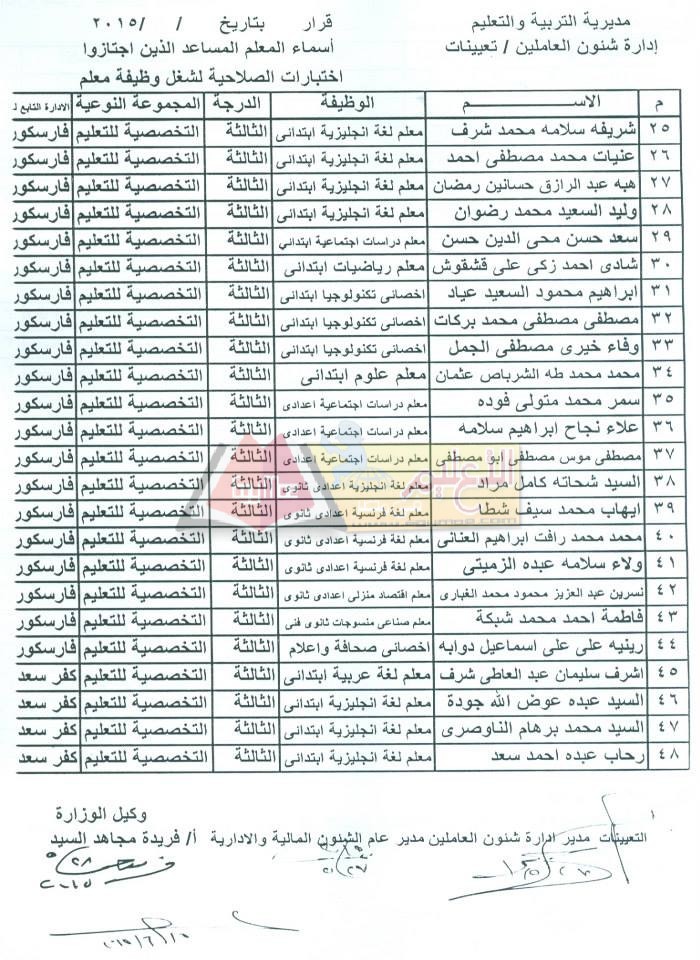 مديرية التربية والتعليم
إدارة شئون العاملين / تعيينات
قرار بتاريخ / /٢٠١٥
أسماء المعلم المساعد الذين اجتازوا
اختبارات الصلاحية لشغل وظيفة معلم
م الاســـم الوظيفة الدرجة المجموعة النوعية الادارة التابع
٢٥ شريفه سلامه محمد شرف معلم لغة انجليزية ابتدائى الثالثة التخصصية للتعليم فارسكور
٢٦ عنيات محمد مصطفى احمد معلم لغة انجليزية ابتدائى الثالثة التخصصية للتعليم فارسكور
٢٧ هبه عبد الرازق حسانين رمضان معلم لغة انجليزية ابتدائى الثالثة التخصصية للتعليم فارسكور
٢٨ وليد السعيد محمد رضوان معلم لغة انجليزية ابتدائى الثالثة التخصصية للتعليم فارسكور
٢٩ سعد حسن محى الدين حسن معلم دراسات اجتماعية ابتدائي الثالثة التخصصية للتعليم فارسكور
٣٠ شادى احمد زكى على قشقوش معلم رياضيات ابتدائى الثالثة التخصصية للتعليم فارسكور
٣١ ابراهيم محمود السعيد عياد اخصائى تكنولوجيا ابتدائى الثالثة التخصصية للتعليم فارسكور
٣٢ مصطفى مصطفى محمد بركات اخصائى تكنولوجيا ابتدائى الثالثة التخصصية للتعليم فارسكور
٣٣ وفاء خيرى مصطفى الجمل اخصائى تكنولوجيا ابتدائى الثالثة التخصصية للتعليم فارسكور
٣٤ محمد محمد طه الشرباص عثمان معلم علوم ابتدائى الثالثة التخصصية للتعليم فارسكور
٣٥ سمر محمد متولى فوده معلم دراسات اجتماعية اعدادى الثالثة التخصصية للتعليم فارسكور
٣٦ علاء نجاح ابراهيم سلامه معلم دراسات اجتماعية اعدادى الثالثة التخصصية للتعليم فارسكور
٣٧ مصطفى موس مصطفى ابو مصطفى معلم دراسات اجتماعية اعدادى الثالثة التخصصية للتعليم فارسكور
٣٨ السيد شحاته كامل مراد معلم لغة انجليزية اعدادى ثانوى الثالثة التخصصية للتعليم فارسكور
٣٩ ايهاب محمد سيف شطا معلم لغة فرنسية اعدادى ثانوى الثالثة التخصصية للتعليم فارسكور
٤٠ محمد محمد رافت ابراهيم العنانى معلم لغة فرنسية اعدادى ثانوى الثالثة التخصصية للتعليم فارسكور
٤١ ولاء سلامه عبده الزميتى معلم لغة فرنسية اعدادى ثانوى الثالثة التخصصية للتعليم فارسكور
٤٢ نسرين عبد العزيز محمود محمد الغبارى معلم اقتصاد منزلى اعدادى ثانوى الثالثة التخصصية للتعليم فارسكور
٤٣ فاطمة احمد محمد شبكة معلم صناعى منسوجات ثانوى فنى الثالثة التخصصية للتعليم فارسكور
٤٤ رينيه على على اسماعيل دوابه اخصائى صحافة واعلام الثالثة التخصصية للتعليم فارسكور
٤٥ اشرف سليمان عبد العاطى شرف معلم لغة عربية ابتدائى الثالثة التخصصية للتعليم كفر سعد
٤٦ السيد عبده عوض الله جودة معلم لغة انجليزية ابتدائى الثالثة التخصصية للتعليم كفر سعد
٤٧ السيد محمد برهام الناوصرى معلم لغة انجليزية ابتدائى الثالثة التخصصية للتعليم كفر سعد
٤٨ رحاب عبده احمد سعد معلم لغة انجليزية ابتدائى الثالثة التخصصية للتعليم كفر سعد
وكيل الوزارة
التعيينات مدير ادارة شئون العاملين مدير عام الشئون المالية والادارية أ/ فريدة مجاهد السيد